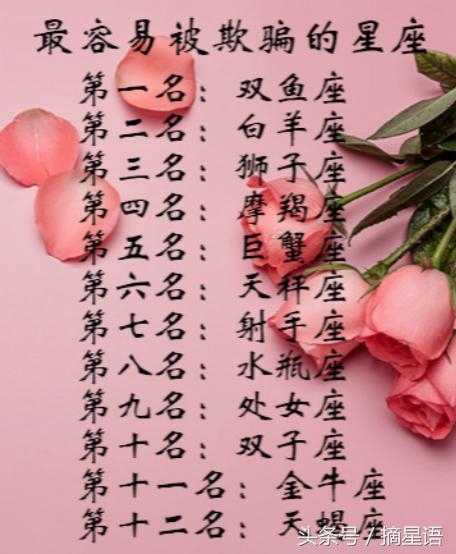 最容易被欺骗的星座
第一名：双鱼座
第二名：白羊座
第三名：狮子座
第四名：摩羯座
第五名：巨蟹座
第六名：天秤座
第七名：射手座
第八名：水瓶座
第九名：处女座
第十名：双子座
第十一名：金牛座
第十二名：天蝎座
头条号 / 摘星语